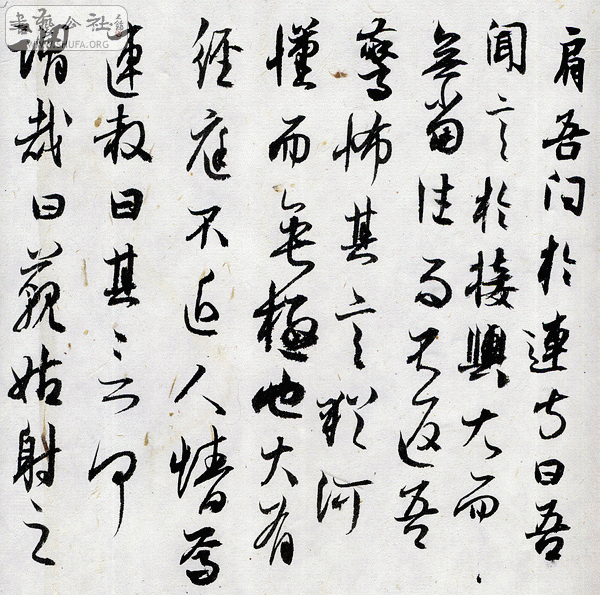 肩吾問於連叔曰吾
聞言於接輿大而
無當往而不返吾
驚怖其言猶河
漢而無極也大有
經庭不近人情焉
連叔曰其言何
謂哉曰藐姑射之
書藝公社
SHUFA.ORG